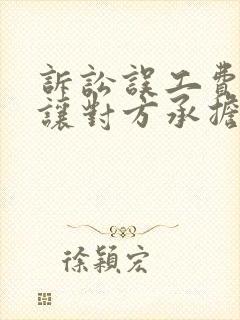 訴訟誤工費
讓對方承擔
徐穎宏